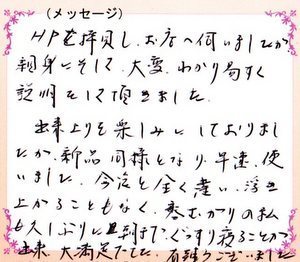 （メッセージ）
HPを拝見し、お店へ伺いましたが
親身にそして、大変、わかり易すく
説明をして頂きました。
出来上りを楽しみにしておりまし
たが、新品同様となり、早速、使
いました。今迄と全く違い、浮き
上がることもなく、寒むがりの私
も久しぶりに朝まで、ぐっすり寝ることが
出来、大満足でした。有難うございました